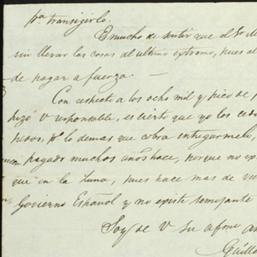 pa transijirlo.
Es mucho de sentir que el Sr
sin llevar las cosas al ultimo extremo, pues al
de pagar a fuerza.
Con respecto a los ocho mil y pico de p
V responsable, es cierto que yo los
pr lo demas que
pagado muchos años hace, porque no
que en la Luna, pues hace mas de
Gobierno Español y no existe semejante
Soy de V su afmo